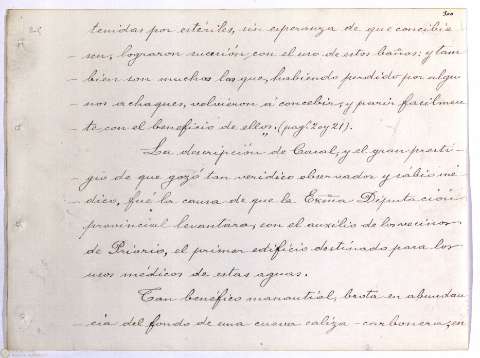 300
tenidas por estériles, sin esperanza de que concibie
sen, lograron sucesión, con el uso de estos baños: y tam
– bién son muchas las que, habiendo perdido por algu
– nos achaques, volvieron á concebir, y parir facilmen
– te con el beneficio de ellos." (pag.ˢ 20 y 21).
La descripción de Casal, y el gran presti-
gio de que gozó tan verídico observador y sábio mé
– dico, fué la causa de que la Excma Diputación
provincial levantara, con el auxilio de los vecinos
de Priorio, el primer edificio destinado para los
usos médicos de estas aguas.
Tan benéfico manantial, brota en abundan
– cia del fondo de una cueva caliza-carbonera, en